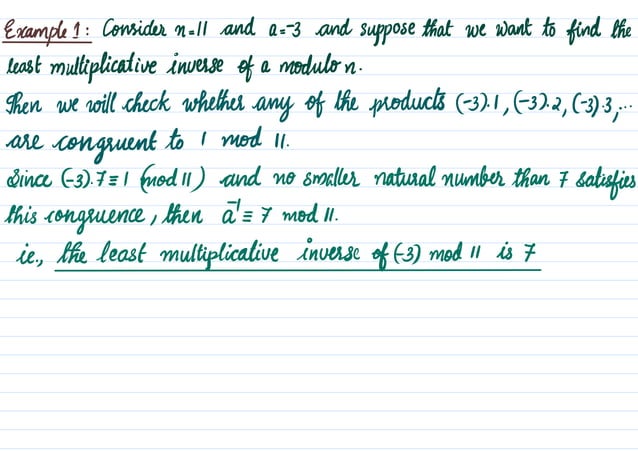 Example 1: Consider n=11 and a=-3 and suppose that we want to find the
least multiplicative inverse of a modulo n.
Then we will check whether any of the products (-3).1, (-3).2, (-3).3,...
are congruent to 1 mod 11.
Since (-3).7≡1 (mod 11) and no smaller natural number than 7 satisfies
this congruence, then a⁻¹≡ 7 mod 11.
ie., the least multiplicative inverse of (-3) mod 11 is 7